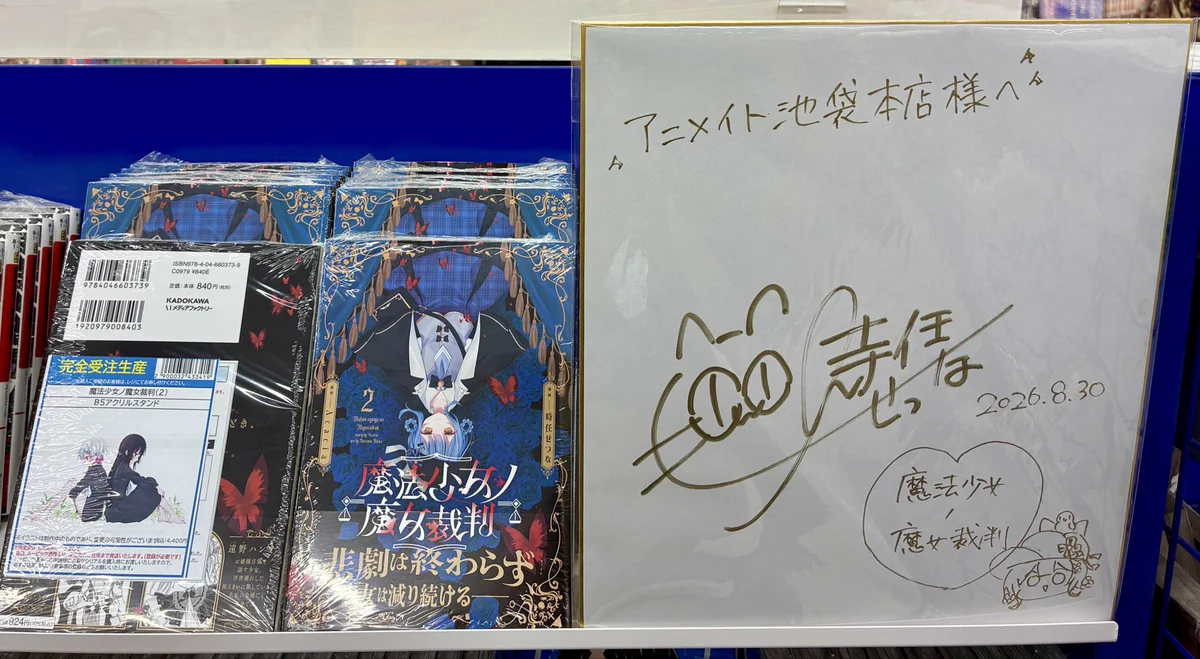 ISBN978-4-04-660373-9
C0979 ¥840E
定価:本体 840円(税別)
KADOKAWA
メディアファクトリー
9784046603739
1920979008403
完全受注生産
魔法少女ノ魔女裁判(2)
B5アクリルスタンド
遠野ハン
924円
2
Acacia
時任せつな
魔法少女ノ
魔女裁判
悲劇は終わらず
女は減り続ける
アニメイト池袋本店様へ
時任せつな
2026.8.30
魔法少女
ノ
魔女裁判